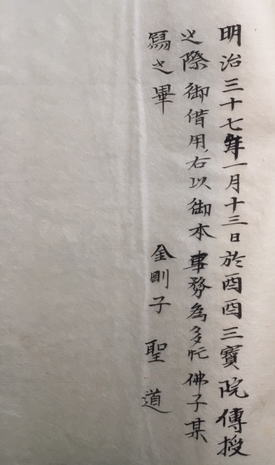 明治三十七年一月十三日於酉酉三寳院傳授
之際御借用右以御本事務為多忙佛子某
寫之畢　金剛子　聖道